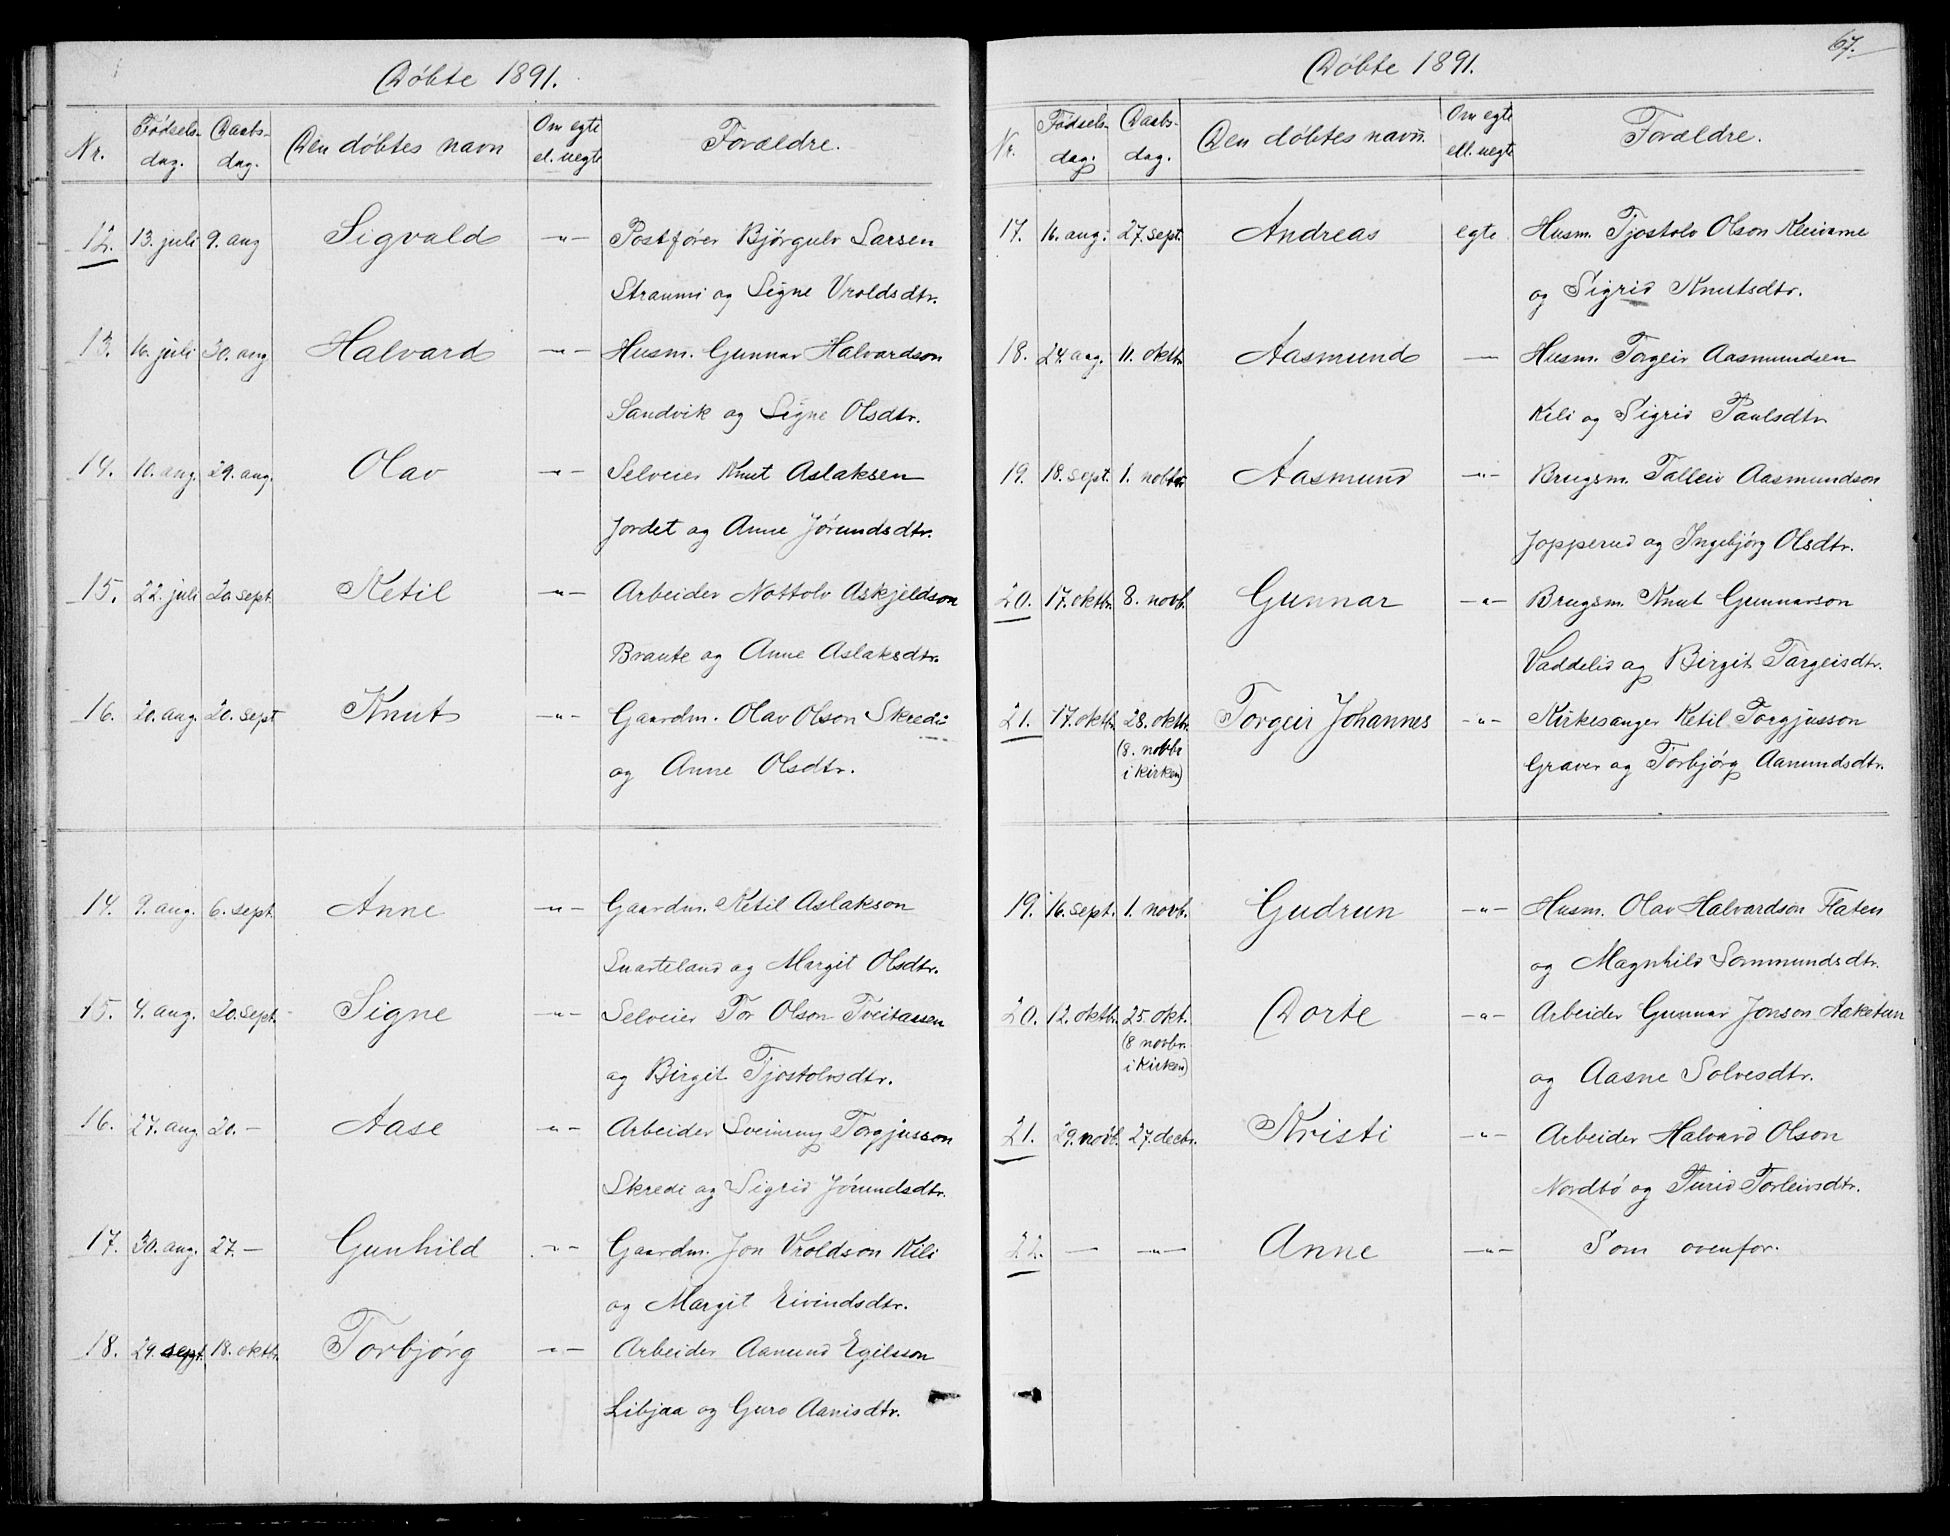 Døbte 1891.
Nr. Fødselsdag. Daabsdag. Den døbtes navn Om egte el. uegte Forældre.
12. 13. juli 9. aug Sigvald -"- Postfører Bjørgulv Larsen
Straumi og Signe Vroldsdtr.
13. 16. juli 30. aug Halvard -"- Husm. Gunnar Halvardson
Sandvik og Signe Olsdtr.
14. 10. aug. 29. aug. Olav -"- Selveier Knut Aslaksen
Jordet og Anne Jørundsdtr.
15. 22. juli 20. sept. Ketil -"- Arbeider Nottolv Askjeldson
Braute og Anne Aslaksdtr.
16. 20. aug. 20. sept Knut -"- Gaardm. Olav Olson Skredi
og Anne Olsdtr.
14. 9. aug. 6. sept. Anne -"- Gaardm. Ketil Aslakson
Snarteland og Margit Olsdtr.
15. 4. aug. 20. sept. Signe -"- Selveier Tor Olson Tveitaasen
og Birgit Tjostolvsdtr.
16. 27. aug 20. - Aase -"- Arbeider Sveinung Torgjusson
Skredi og Sigrid Jørundsdtr.
17. 30. aug. 27. - Gunhild -"- Gaardm. Jon Vroldson Kili
og Margit Eivindsdtr.
18. 29. sept. 18. oktbr. Torbjørg -"- Arbeider Aanund Egilsson
Libjaa og Guro Aanisdtr.
67.
Døbte 1891.
Nr. Fødselsdag. Daabsdag. Den døbtes navn. Om egte ell. uegte Forældre.
17. 16. aug. 27. sept. Andreas egte Husm. Tjostolv Olson Kleivarne
og Sigrid Knutsdtr.
18. 24. aug. 11. oktbr. Aasmund — Husm. Torgeir Aasmundsen
Kili og Sigrid Paulsdtr
19. 18. sept. 1. novbr Aasmund -"- Brugsm. Talleiv Aasmundson
Jopperud og Ingebjørg Olsdtr.
20. 17. oktbr. 8. novb. Gunnar -"- Brugsm. Knut Gunnarson
Vaddelid og Birgit Targeisdtr.
21. 17. oktbr. 28. oktbr. Torgeir Johannes -"- Kirkesanger Ketil Torgjusson
(8. novbr
i kirken)
Graver og Torbjørg Aanundsdtr.
19. 16. sept. 1. novb. Gudrun -"- Husm. Olav Halvardson Flaten
og Magnhild Sommundsdtr.
20. 12. oktb. 25. okt. Dorte -"- Arbeider Gunnar Jonson Aaketun
(8 novbr.
i kirken)
og Aasne Solvesdtr.
21. 29. novb. 27. decbr. Kristi -"- Arbeider Halvard Olson
Nordbø og Turid Torleivsdtr.
22. — -"- Anne -"- Som ovenfor.